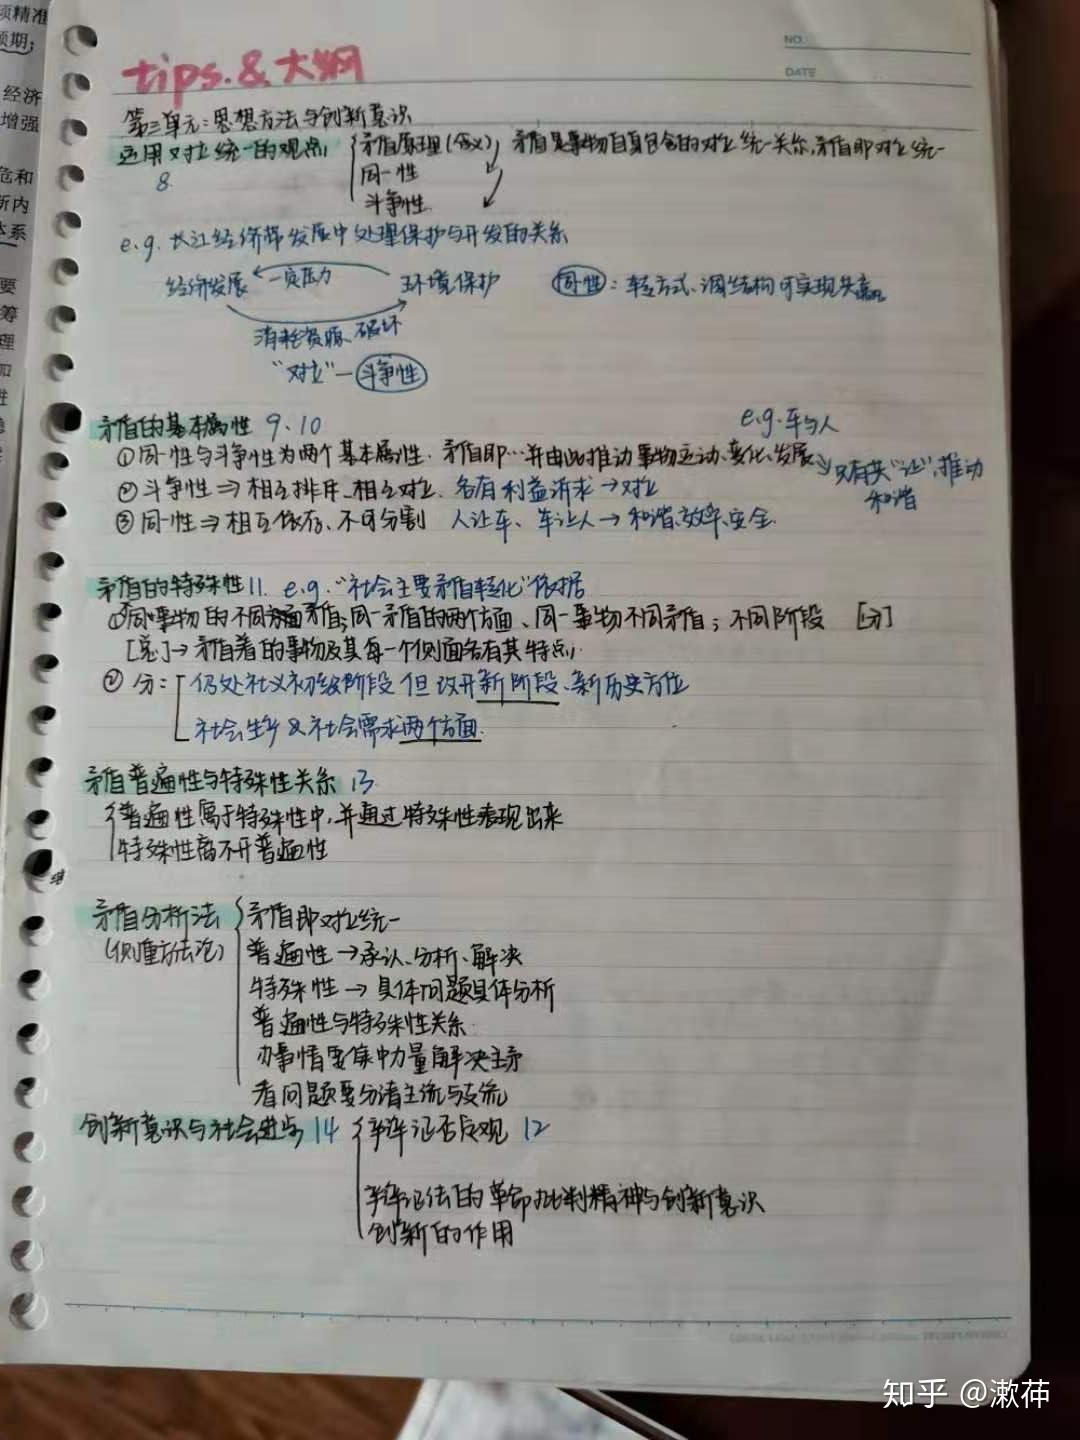 须精准
预期;
经济
增强
危和
新内
体系
要
筹
理
加
性
NO.
DATE
tips.&大纲
第三单元:思想方法与创新意识
运用对立统一的观点 矛盾原理(含义) 矛盾是事物自身包含的对立统一关系,矛盾即对立统一
8. 同一性
斗争性
e.g. 长江经济带发展中处理保护与开发的关系
经济发展 一定压力 环境保护 同一性:转方式、调结构可实现共赢
消耗资源、破坏
"对立"—斗争性
矛盾的基本属性 9.10 e.g.车与人
①同一性与斗争性为两个基本属性. 矛盾即…并由此推动事物运动、变化、发展 只有共"让",推动
②斗争性⇒相互排斥、相互对立. 各有利益诉求→对立 和谐
③同一性⇒相互依存、不可分割 人让车、车让人→和谐、效率、安全.
矛盾的特殊性 11. e.g."社会主要矛盾转化"依据
①不同事物的不同矛盾;同一矛盾的两个方面、同一事物不同矛盾; 不同阶段 [分]
[总]→矛盾着的事物及其每一个侧面各有其特点
②分: 仍处社义初级阶段 但改开新阶段、新历史方位
社会生产&社会需求两个方面.
矛盾普遍性与特殊性关系 13
普遍性寓于特殊性中,并通过特殊性表现出来
特殊性离不开普遍性
矛盾分析法 矛盾即对立统一
(侧重方法论) 普遍性→承认、分析、解决
特殊性→具体问题具体分析
普遍性与特殊性关系
办事情要集中力量解决主矛
看问题要分清主流与支流
创新意识与社会进步 14 辩证否定观 12
辩证法的革命批判精神与创新意识
创新的作用
知乎 @漱茽